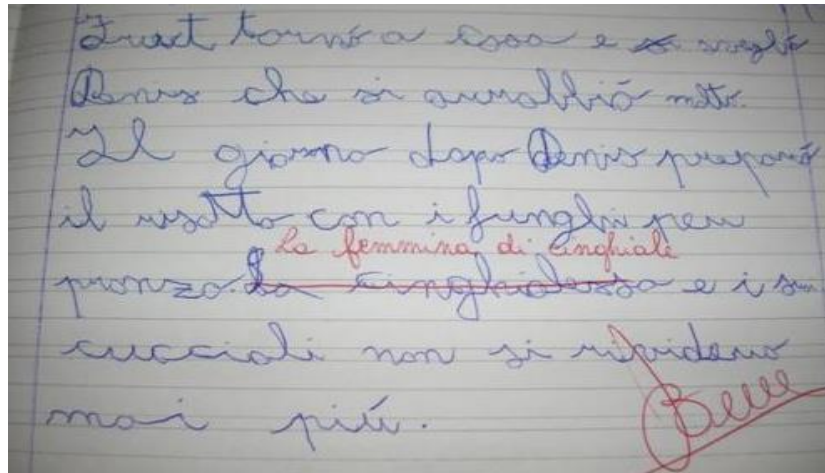 Zuact tornò a casa e si svegliò
Denis che si arrabbiò molto.
Il giorno dopo Denis preparò
il risotto con i funghi per
La femmina di cinghiale
pranzo. La cinghialessa e i suoi
cuccioli non si rividero
mai più.
Bene